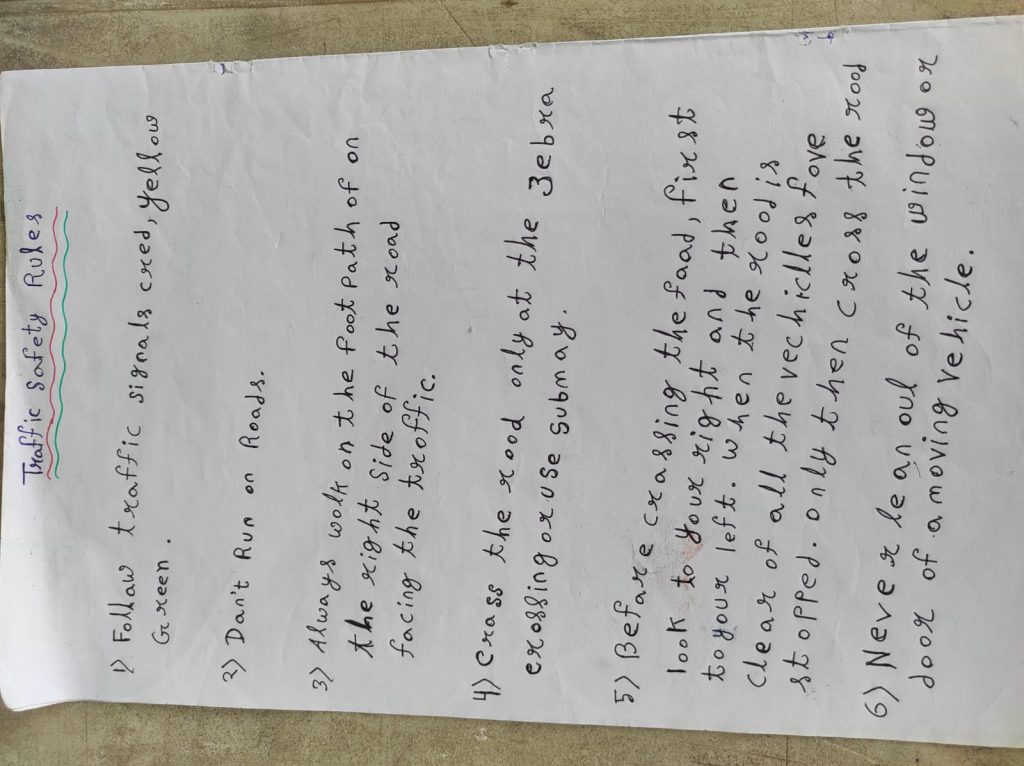 Traffic Safety Rules
1) Follaw traffic signals cred, yellow
Green.
2) Dan't Run on Roads.
3) Always walk on the foot path of on
the right side of the road
facing the troffic.
4) crass the rood only at the zebra
crossing or use submay.
5) Befare crassing the faad, first
look to your right and then
to your left. when the rood is
clear of all the vechiclles fave
stopped. only then cross the rood
6) Never lean oul of the window or
door of a moving vehicle.